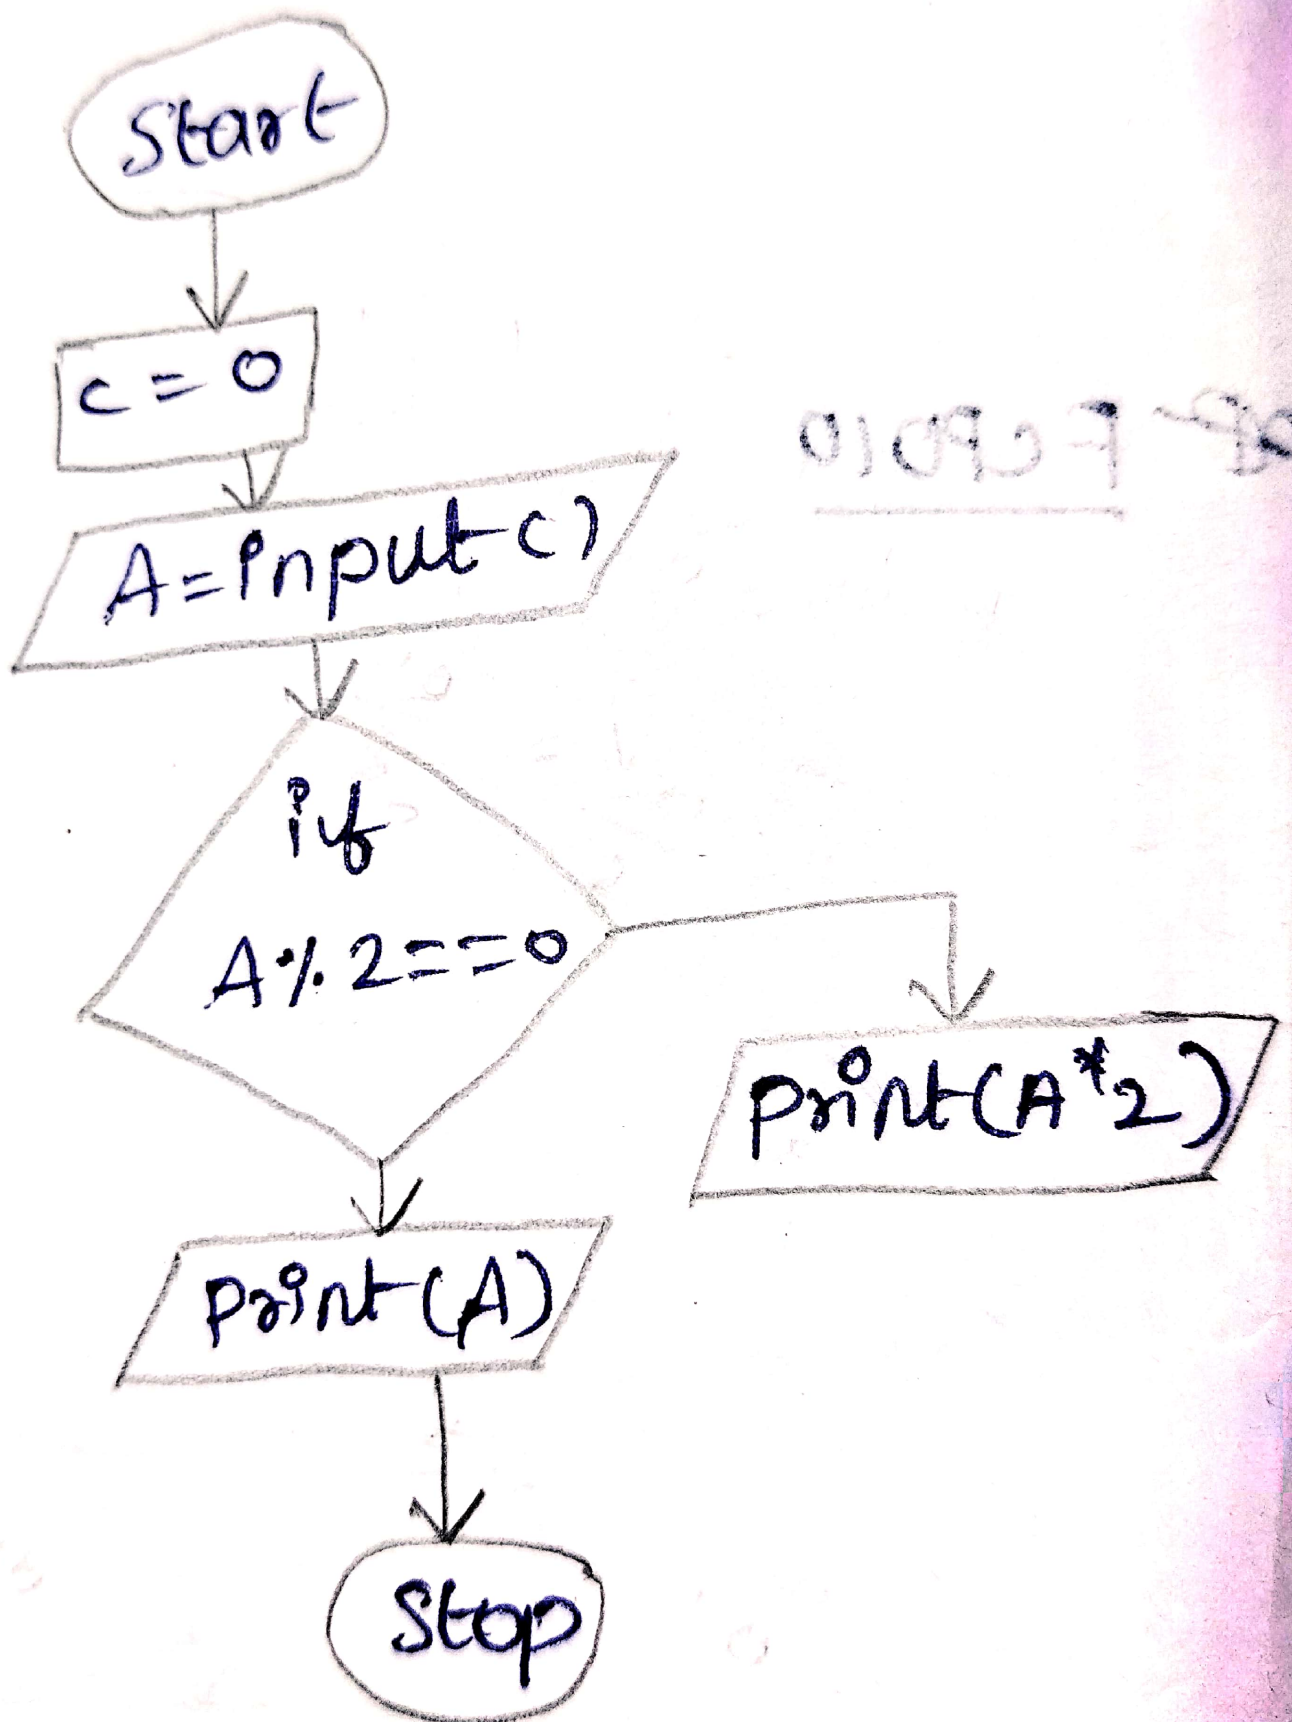 Start
c = 0
A = input()
if
A % 2 == 0
print(A*2)
print(A)
Stop